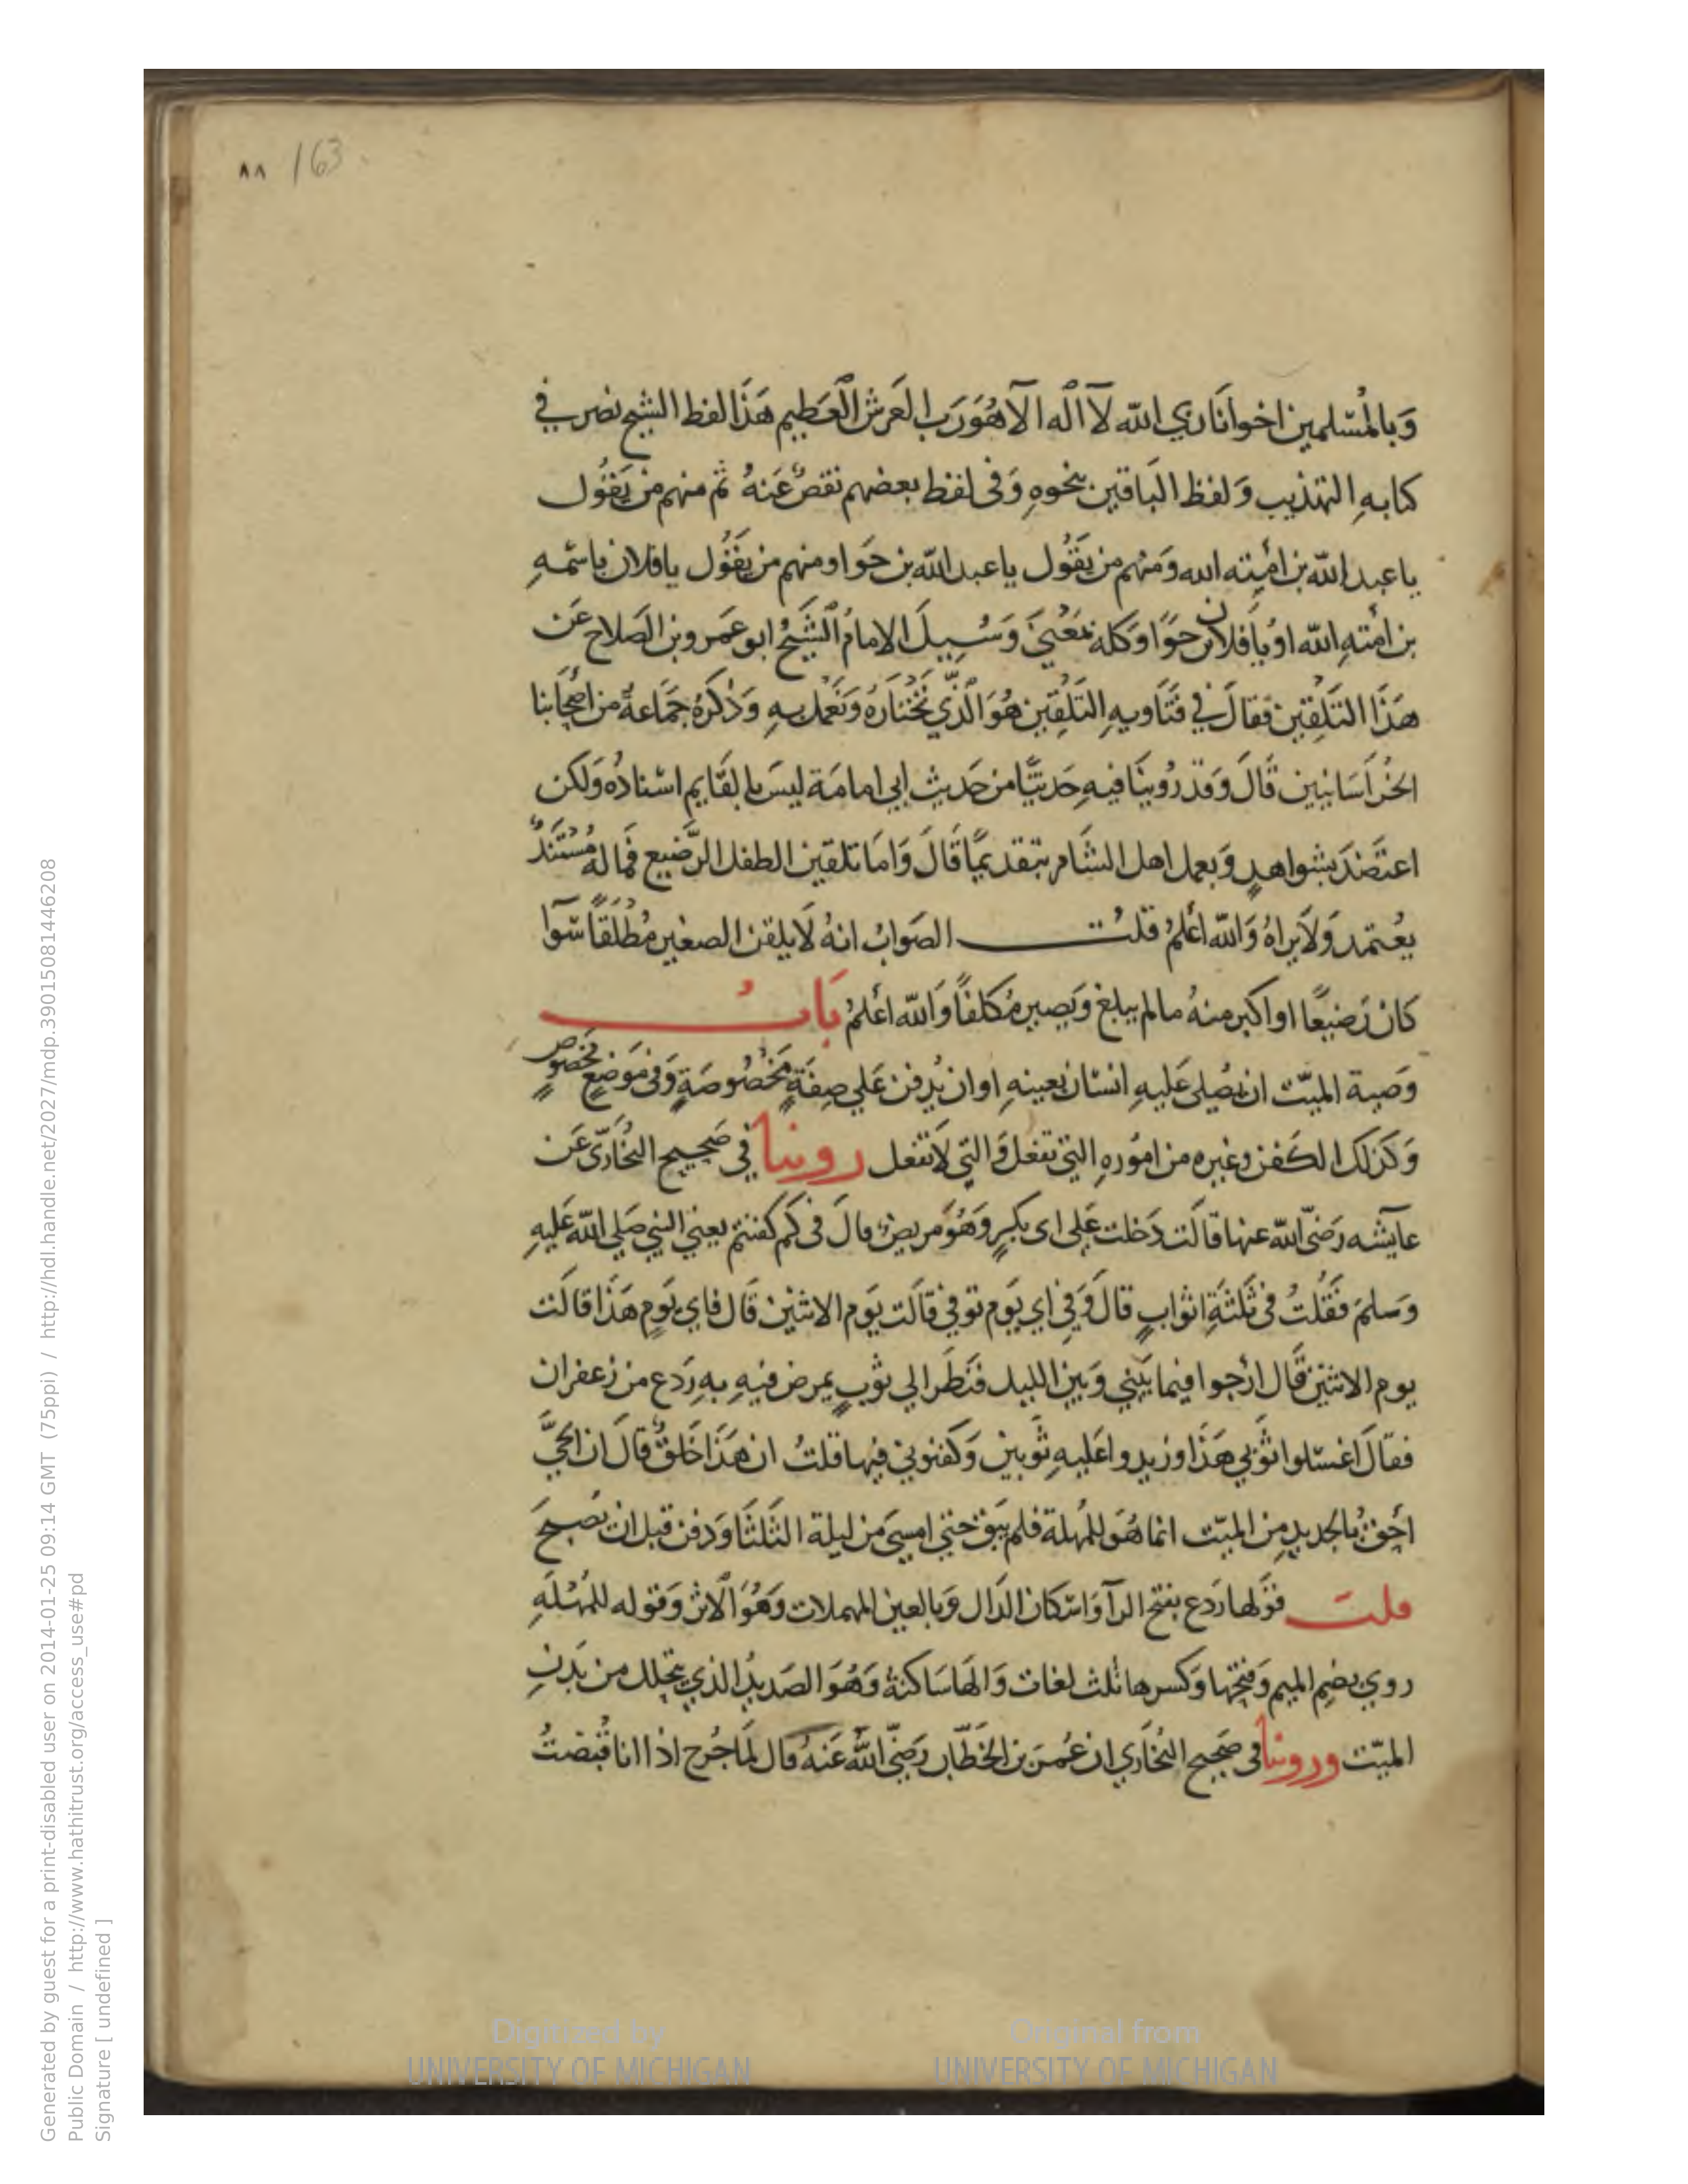 ٨٨ 163
وَبالمُسْلمين اخوانا ربي الله لآ اله الآ هُوَ رَب العَرش العَظيم هَذا لفظ الشيخ نصر في
كتابهِ التهذيب وَلفظ الباقين بنحوهِ وَفى لفظ بعضهم نقصٌ عَنهُ ثم منهم من يَقُول
يا عبد الله بن امَته الله وَمنهم من يَقُول يا عبد الله بن حَوا ومنهم من يَقُول يا فلان باسْمهِ
بن امَتهِ الله اوْ يا فلان بن حوّا وَكله بمَعْنىَ وَسُئِيلَ الامامُ الشَّيخُ ابو عَمرو بن الصَلاح عَن
هَذَا التَلقين فقالَ في فتَاويهِ التَلقين هُوَ الَّذي نختارَهُ وَنعمَل بهِ وَذكرَهُ جَمَاعةٌ من اصْحَابنا
الخرَاسَانيين قالَ وَقد رُوينَا فيهِ حَديثًا من حَديث ابي امامَة ليسَ بالقَايم اسْنادُهُ وَلكن
اعتضَدَ بشواهدٍ وَبعمل اهل الشام بتقديمًا قالَ وَامَا تلقين الطفل الرّضيع فمَا لهُ مُسْتَندٌ
يعْتمد وَلَا يراهُ وَالله اعْلمُ قلتُ الصَوابُ انهُ لَا يلقن الصغير مُطلقًا سَوآا
كَان رَضيعًا او اكبر منهُ مالم يبلغ وَيَصير مُكلفًا وَالله اعْلمُ بَابُ
وَصية الميّت ان يُصلى عَليهِ انسَان بعينهِ او ان يُدفن عَلي صِفةٍ مَخصُوصَةٍ وَفى مَوضعٍ مخصُوصٍ
وَكذلك الكفن وغيره من امُورهِ التي تفعل وَالتي لَا تفعل روينا في صَحيح البُخَاريّ عَن
عَايشه رَضىّ الله عنها قالَت دَخلت عَلي ابي بكرٍ وَهُوَ مريضٌ قالَ فى كَم كفنتم يعني النبي صَلي الله عَليهِ
وَسَلمَ فَقلتُ فى ثَلثةِ اثوابٍ قالَ وَفِي اي يَوم توفي قالَت يَوم الاثنين قَال فاي يَومٍ هَذَا قالَت
يوم الاثنين قَال ارْجوا فيما بيَني وَبين الليل فنَظَر الي ثوبٍ يمرض فيهِ بهِ رَدع من زعفران
فقالَ اغسْلوا ثوبي هَذَا وزيدوا عَليهِ ثوبين وَكفنوني فيها قلتُ ان هَذَا خَلقٌ قالَ ان الحَيَّ
احَق بالجديدِ من الميّت انما هُوَ للمُهلة فلم يتوَفّ حتي امسيَ من ليلة الثَلثَا وَدفن قبل ان يُصبحَ
قلت قوْلها رَدع بفتح الرآ وَاسْكان الدَال وَبالعين المهملات وَهُوَ الاثر وَقوله للمُهْلَهِ
روي بضِم الميم وَفتحها وَكسرها ثلث لغات وَالهَا سَاكنةٌ وَهُوَ الصَديدُ الذي يتحلل من بَدنِ
الميّت وروينا فى صَحيح البُخَاري ان عُمَرَ بن الخَطَّاب رَضىّ الله عَنهُ قال لمَا جُرح اذا انا قُبضتُ
Generated by guest for a print-disabled user on 2014-01-25 09:14 GMT (75ppi) / http://hdl.handle.net/2027/mdp.39015081446208
Public Domain / http://www.hathitrust.org/access_use#pd
Signature [ undefined ]
Digitized by
UNIVERSITY OF MICHIGAN
Original from
UNIVERSITY OF MICHIGAN